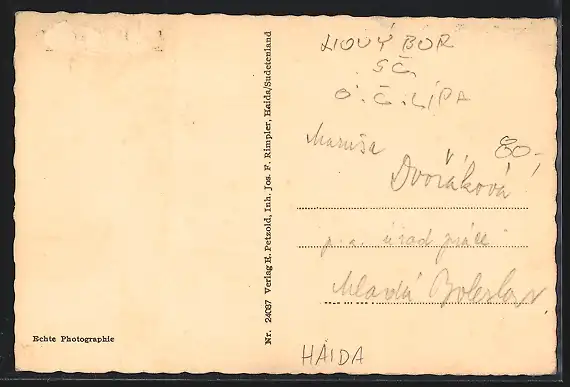 NOVÝ BOR
SČ.
O.Č. LÍPA
Maruša
80,-
Dvořáková
p. a. úřad práce
Mladá Boleslav
HAIDA
Echte Photographie
Nr. 24087 Verlag E. Petzold, Inh. Jos. F. Rimpler, Haida/Sudetenland